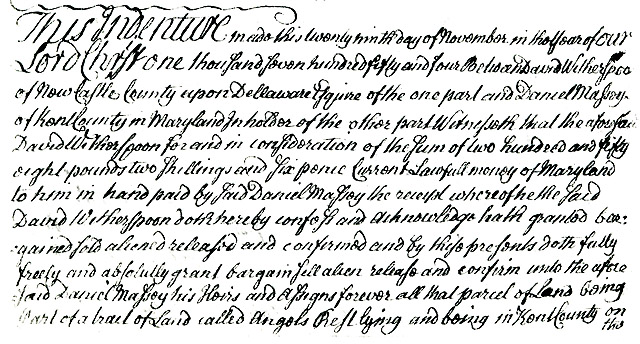 This Indenture made this twenty ninth day of November in the Year of our
Lord Christ one thousand seven hundred fifty and four Between David Witherspoo
of New Castle County upon Dellaware Esquire of the one part and Daniel Massey
of Kent County in Maryland Inholder of the other part Witnesseth that the aforesai
David Witherspoon for and in consideration of the sum of two hundred and fifty
eight pounds two shillings and six pence Current Lawfull money of Maryland
to him in hand paid by said Daniel Massey the receipt whereof he the said
David Witherspoon doth hereby confess and acknowledge hath granted bar=
=gained sold aliened released and confirmed and by these presents doth fully
freely and absolutly grant bargain sell alien release and confirm unto the afore
said Daniel Massey his Heirs and assigns forever all that parcel of Land being
part of a tract of Land called Angels Rest lying and being in Kent County on
the